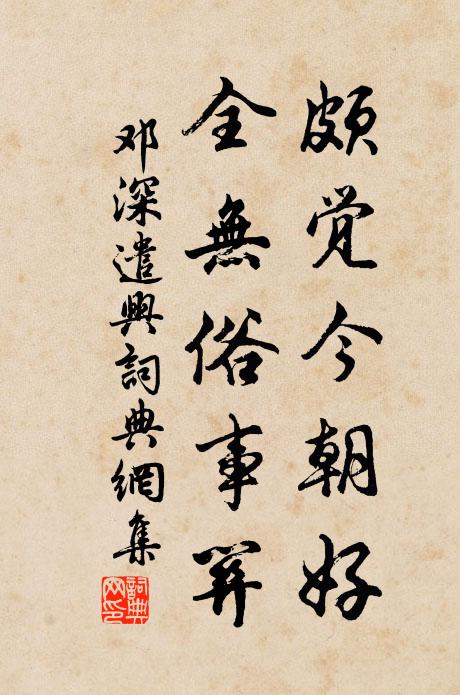 頗觉今朝好
全無俗事
邓深遣興詞典網集
詞典
网印